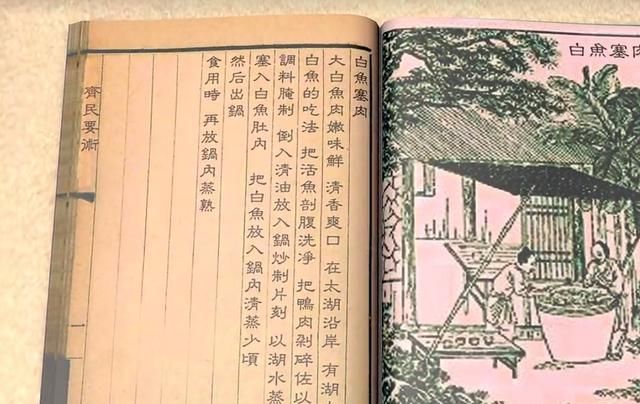 白魚塞肉
白魚塞肉
大白魚肉嫩味鮮 清香爽口 在太湖沿岸 有湖
白魚的吃法 把活魚剖腹洗凈 把鴨肉剁碎佐以
調料腌制 倒入清油放入鍋炒制片刻 以湖水蒸
塞入白魚肚內 把白魚放入鍋內清蒸少頃
然后出鍋
食用時 再放鍋內蒸熟
齊民要術
一